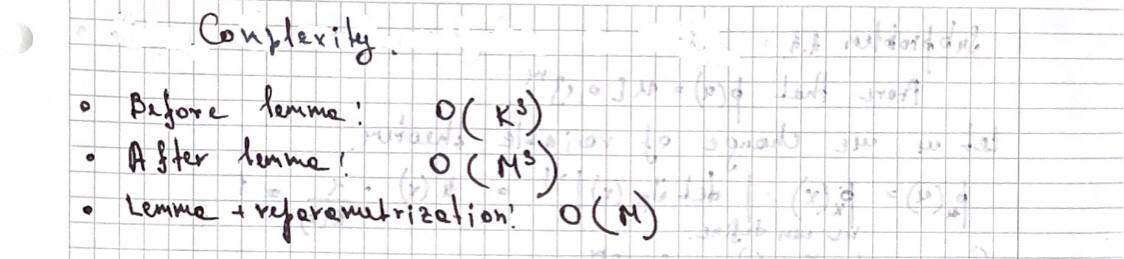 Complexity.
• Before lemma: O(K³)
• After lemma: O(M³)
• Lemma + reparametrization: O(M)